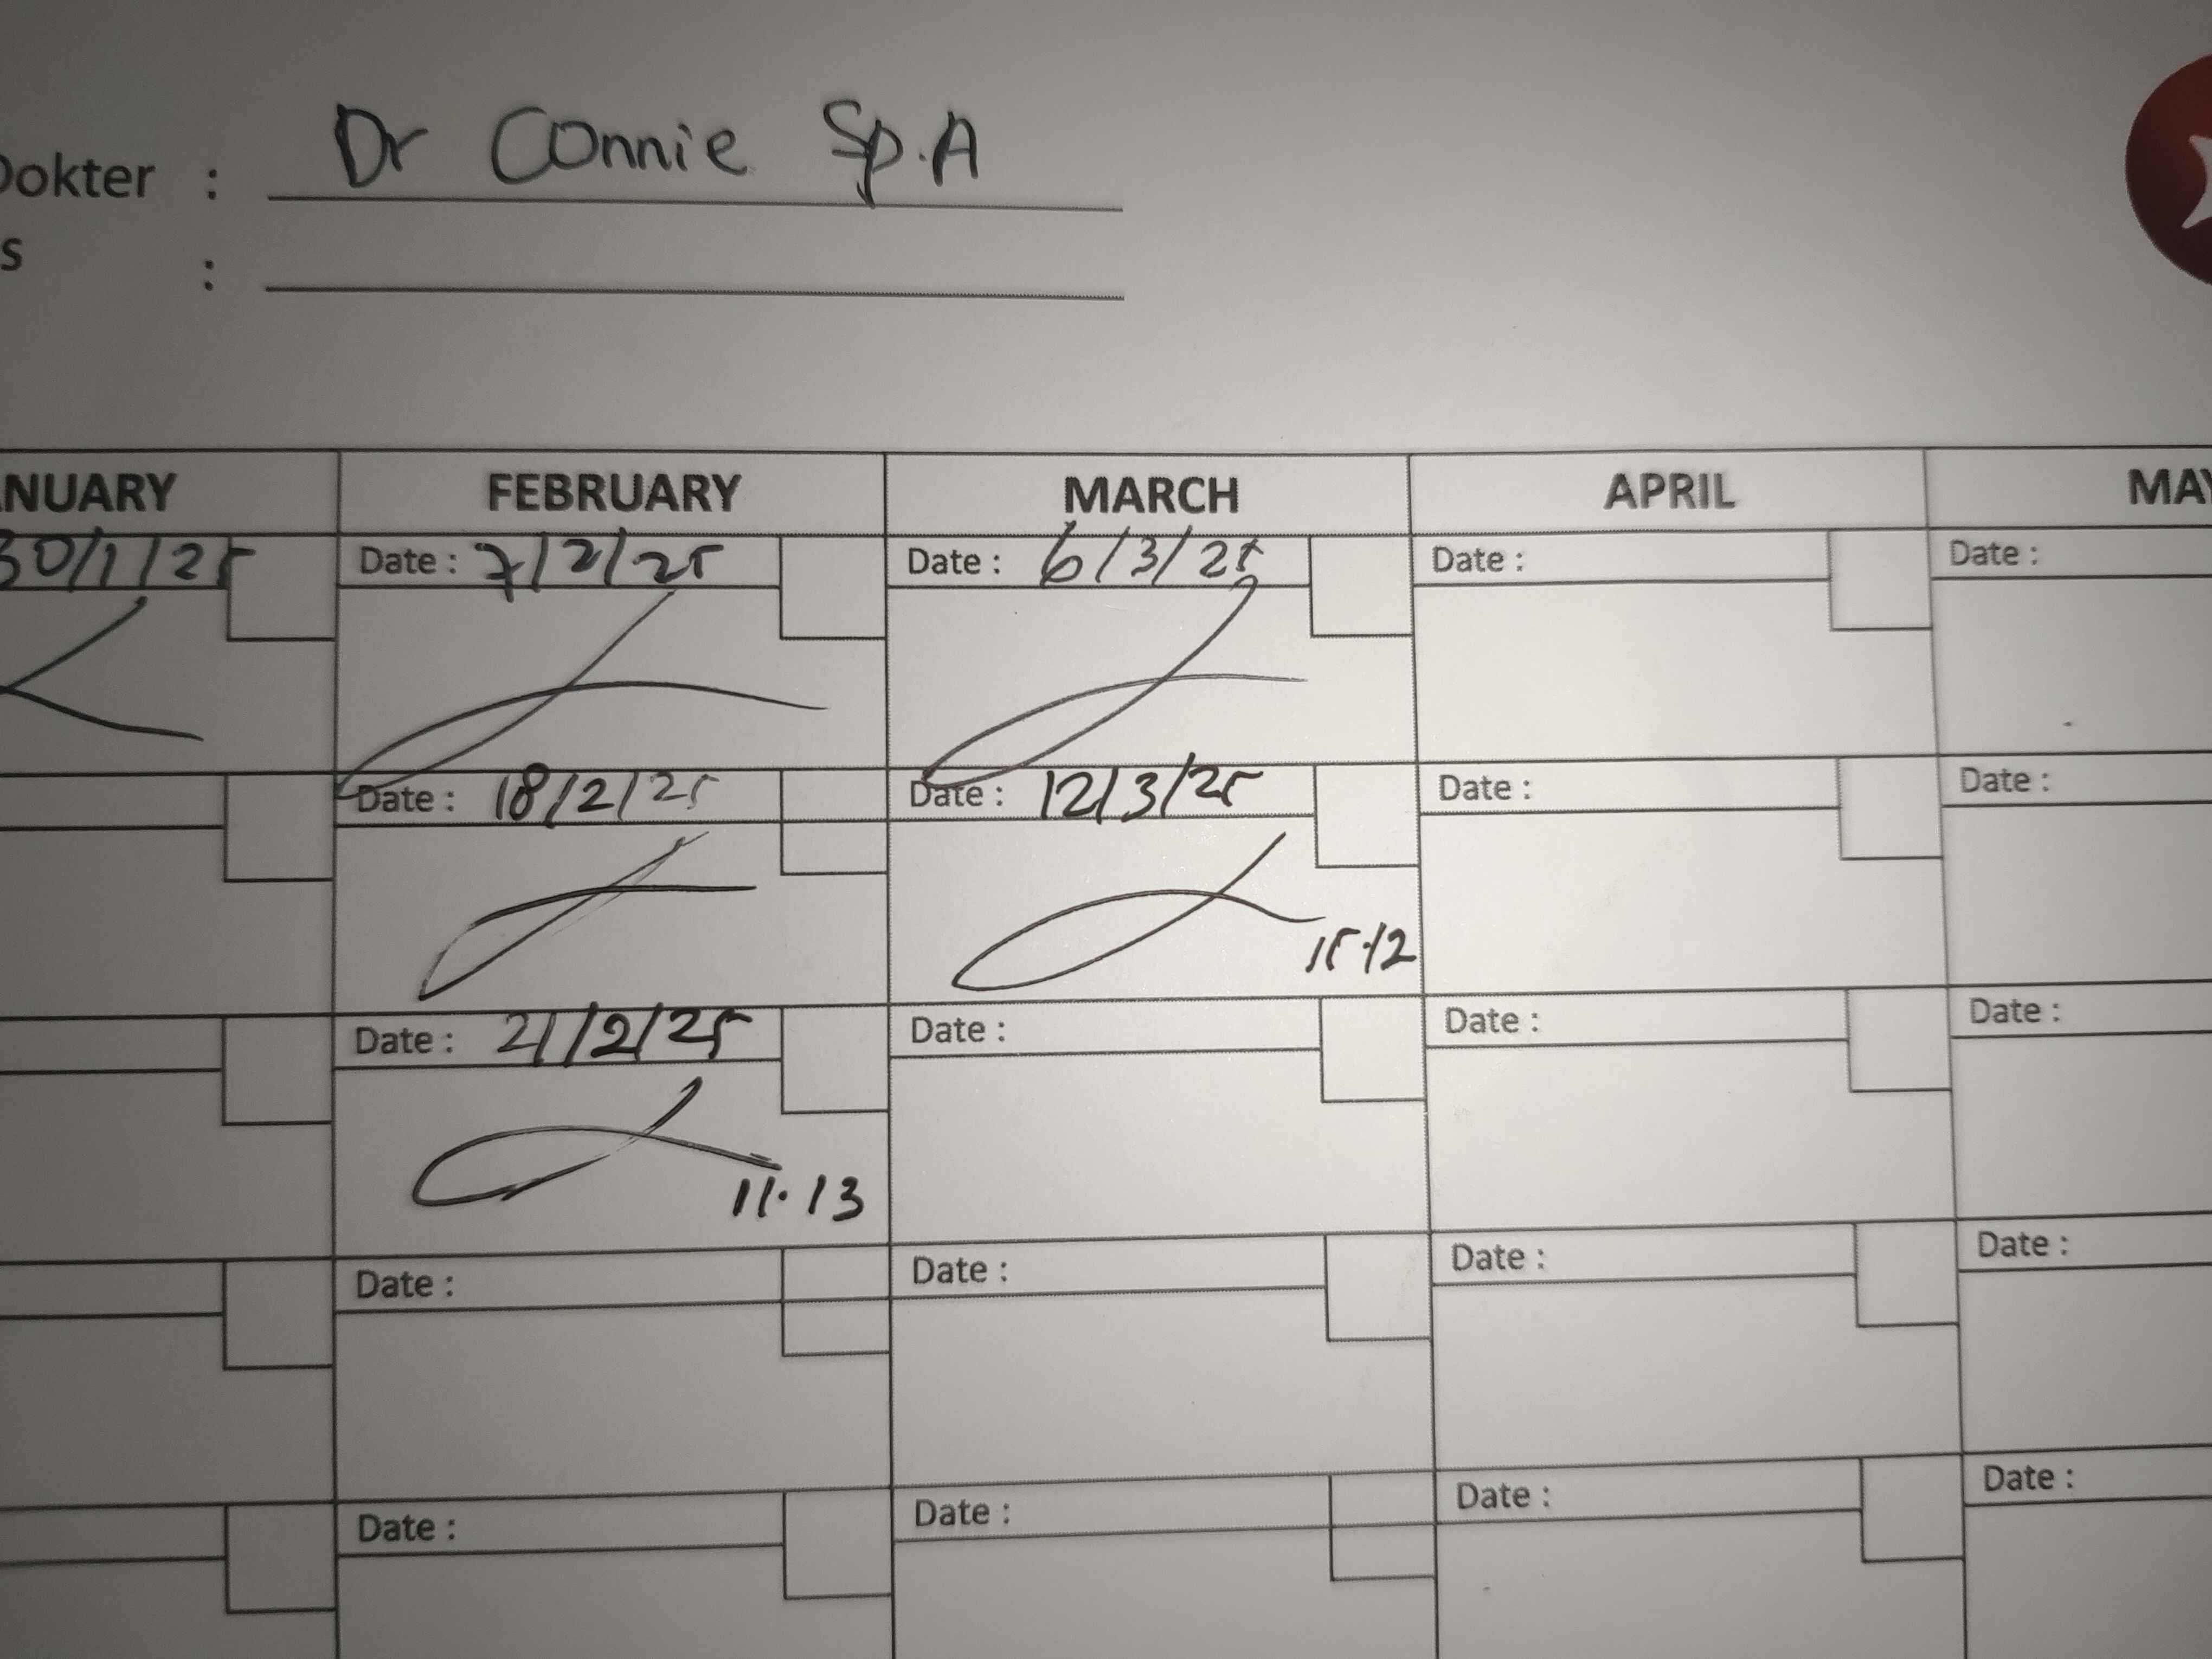 Dokter : Dr Connie Sp.A
s :
ANUARY FEBRUARY MARCH APRIL MAY
30/1/25 Date : 7/2/25 Date : 6/3/25 Date : Date :
Date : 18/2/25 Date : 12/3/25 Date : Date :
15.12
Date : 21/2/25 Date : Date : Date :
11.13
Date : Date : Date : Date :
Date : Date : Date : Date :